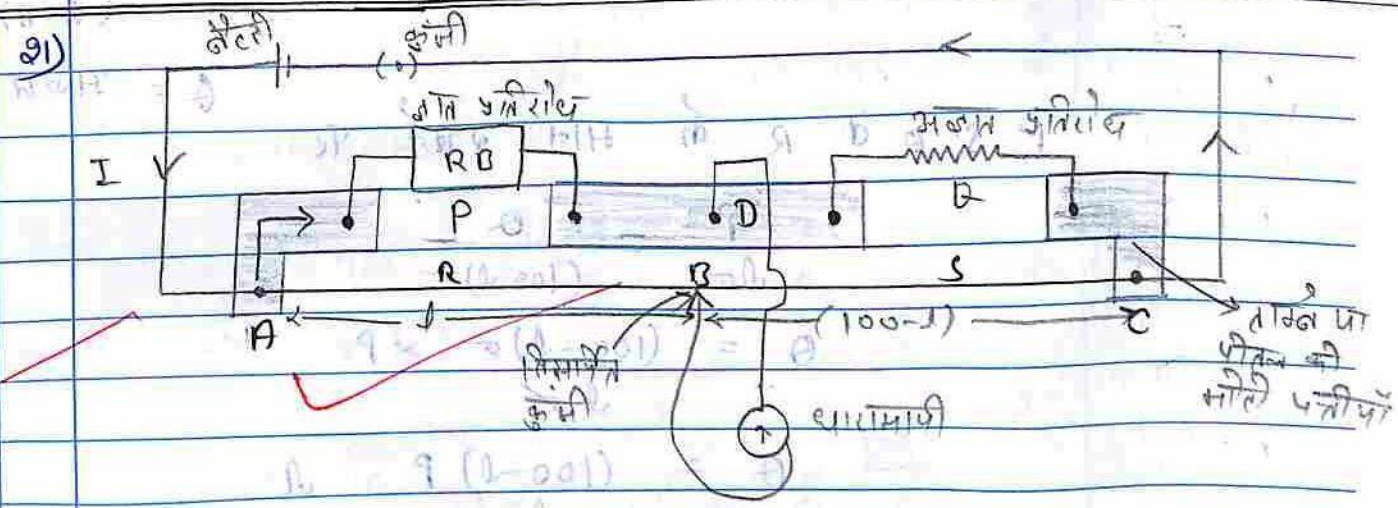 21)
बैटरी कुंजी
(•)
ज्ञात प्रतिरोध अज्ञात प्रतिरोध
I RB
P D Q
R B S
A l (100-l) C
विसर्पी कुंजी
धारामापी
ताम्बे या
पीतल की
मोटी पत्तीयाँ